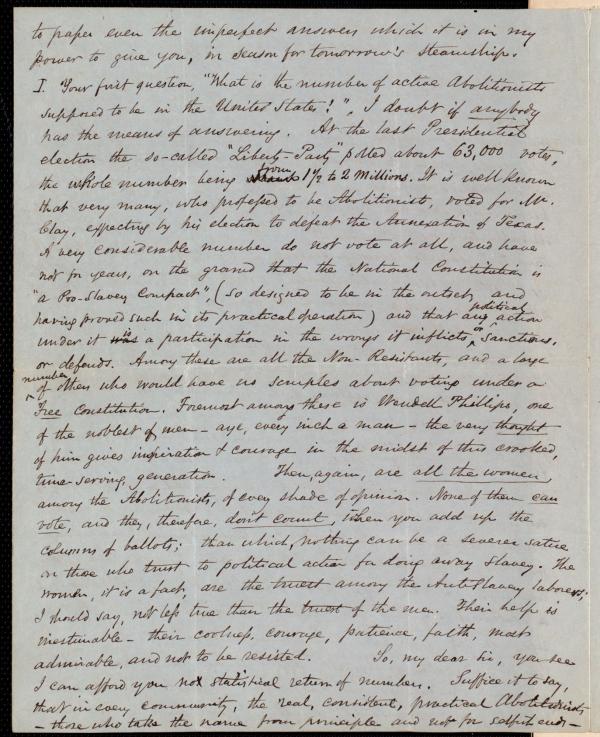 to paper even the imperfect answers which it is in my
power to give you, in season for tomorrow's Steamship.
I. Your first question, "What is the number of active Abolitionists
supposed to be in the United States?", I doubt if anybody
has the means of answering. At the last Presidential
election the so-called "Liberty-Party" polled about 63,000 votes,
from
the whole number being 1 1/2 to 2 Millions. It is well known
that very many, who professed to be Abolitionist, voted for Mr.
Clay, expecting by his election to defeat the Annexation of Texas.
A very considerable number do not vote at all, and have
not for years, on the ground that the National Constitution is
"a Pro-Slavery Compact", (so designed to be in the outset, and
political
having proved such in its practical operation) and that any action
or
under it is a participation in the wrongs it inflicts, sanctions,
or defends. Among these are all the Non-Resistants, and a large
number
of others who would have no scruples about voting under a
Free Constitution. Foremost among these is Wendell Phillips, one
of the noblest of men – aye, every inch a man – the very thought
of him gives inspiration & courage in the midst of this crooked,
time-serving, generation. Then, again, are all the women,
among the Abolitionists, of every shade of opinion. None of them can
vote, and they, therefore, don't count, when you add up the
columns of ballots; than which, nothing can be a severer satire
on those who trust to political action for doing away Slavery. The
women, it is a fact, are the truest among the AntiSlavery laborers;
I should say, not less true than the truest of the men. Their help is
inestimable – their coolness, courage, patience, faith, most
admirable, and not to be resisted. So, my dear Sir, you see
I can afford you no statistical return of numbers. Suffice it to say,
that in every community, the real, consistent, practical Abolitionists
– those who take the name from principle and not for selfish ends –